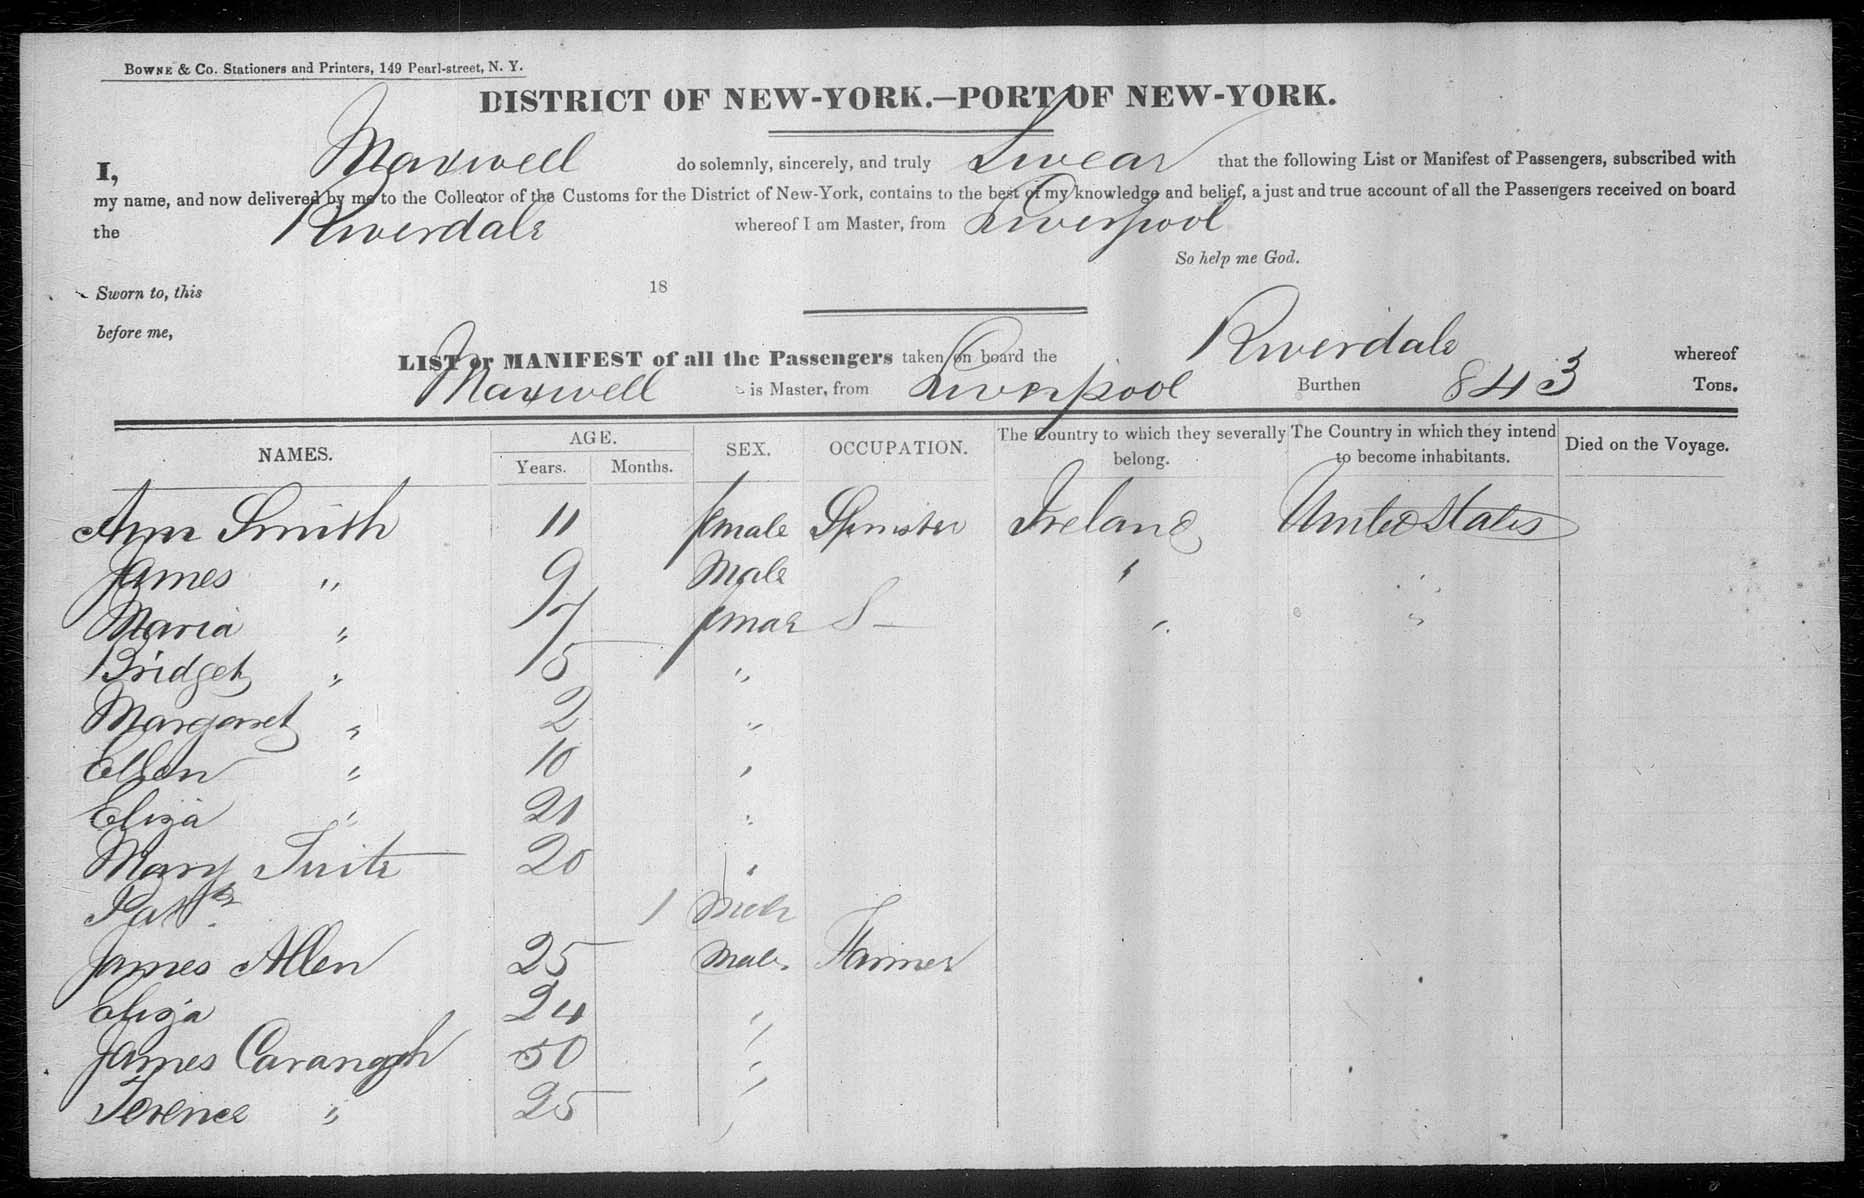 BOWNE & Co. Stationers and Printers, 149 Pearl-street, N. Y.
DISTRICT OF NEW-YORK.—PORT OF NEW-YORK.
I, Maxwell do solemnly, sincerely, and truly Swear that the following List or Manifest of Passengers, subscribed with
my name, and now delivered by me to the Collector of the Customs for the District of New-York, contains to the best of my knowledge and belief, a just and true account of all the Passengers received on board
the Riverdale whereof I am Master, from Liverpool
So help me God.
Sworn to, this 18
before me,
LIST or MANIFEST of all the Passengers taken on board the Riverdale whereof
Maxwell is Master, from Liverpool Burthen 843 Tons.
NAMES. AGE. Years. Months. SEX. OCCUPATION. The Country to which they severally belong. The Country in which they intend to become inhabitants. Died on the Voyage.
Ann Smith 11 female Spinster Ireland United States
James " 9 Male " "
Maria " 7 female S— " "
Bridget " 5 "
Margaret " 2 "
Ellen " 10 "
Eliza " 21 "
Mary Suite 20 "
Patk 1
James Allen 25 Male Farmer
Eliza 24 "
James Cavanagh 50 "
Terence " 25 "